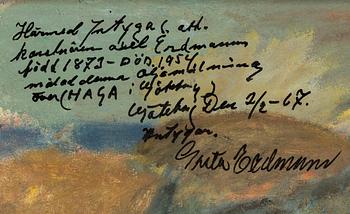 Härmed Intygas att
konstnären Axel Erdmann
född 1873 - DÖD. 1954
målat denna Oljemålning
över (HAGA i Wäddö)
Den 2/2 - 67.
Intygar.
Greta Erdmann